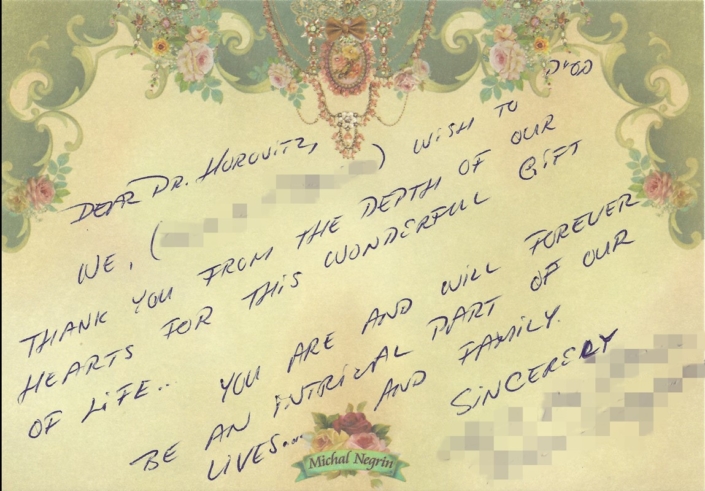 DEAR DR. HOROVITZ,
WE, ( ) WISH TO
THANK YOU FROM THE DEPTH OF OUR
HEARTS FOR THIS WONDERFUL GIFT
OF LIFE.. YOU ARE AND WILL FOREVER
BE AN INTRICAL PART OF OUR
LIVES... AND FAMILY.
SINCERELY
Michal Negrin